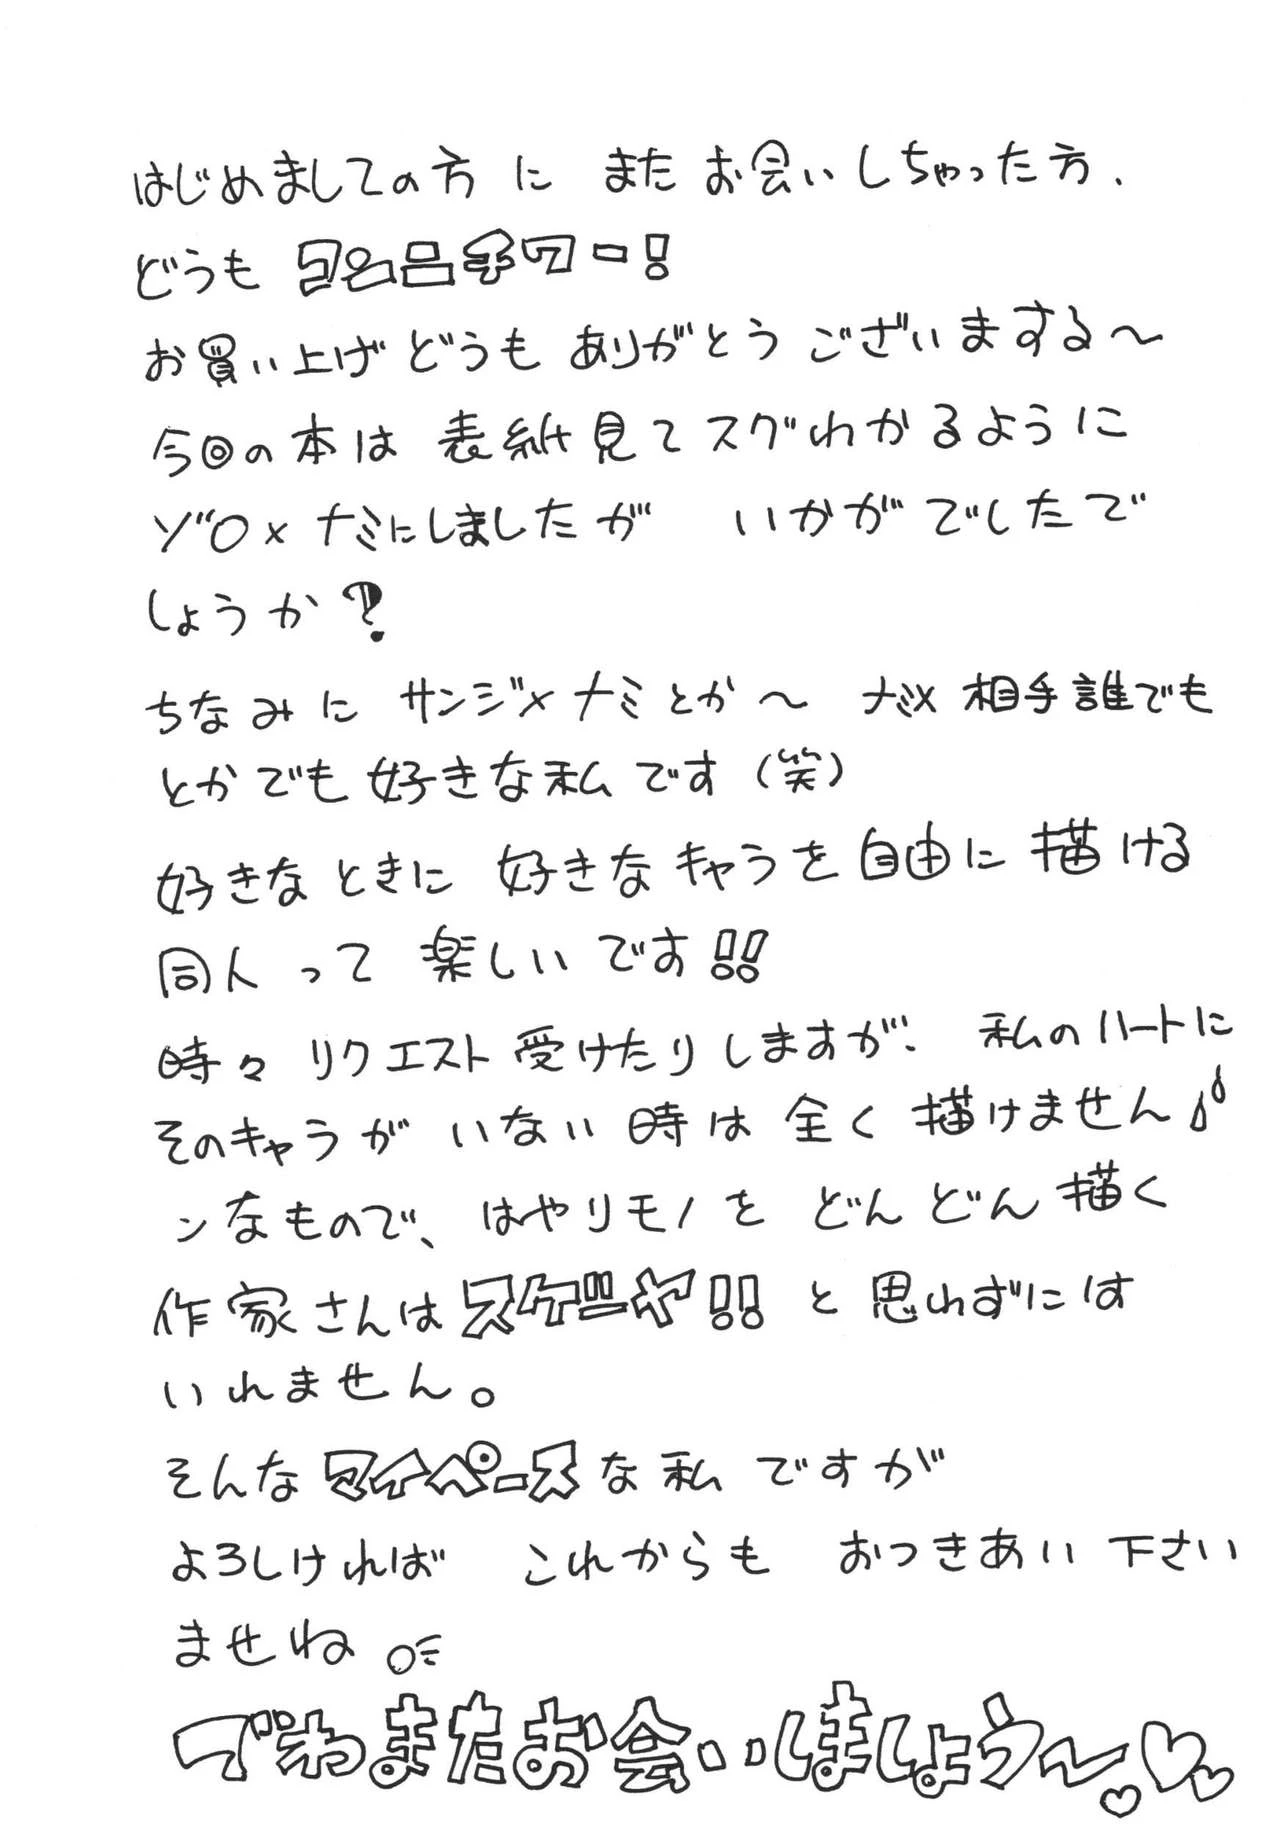 はじめましての方 に また お会いしちゃった方、
どうも コンニチワー!
お買い上げ どうも ありがとう ございまする〜
今回の本は 表紙見て スグわかるように
ゾロ×ナミにしましたが いかがでしたで
しょうか?
ちなみに サンジ×ナミとか〜 ナミ× 相手誰でも
とかでも 好きな私です (笑)
好きな ときに 好きな キャラを 自由に 描ける
同人 って 楽しい です!!
時々 リクエスト 受けたり しますが、 私のハートに
そのキャラが いない 時は 全く 描けません
ンなもので、 はやりモノを どんどん 描く
作家さんは スゲーや!! と 思わずには
いれません。
そんな マイペース な 私 ですが
よろしければ これからも おつきあい 下さい
ませね
でわまたお会いしましょう〜